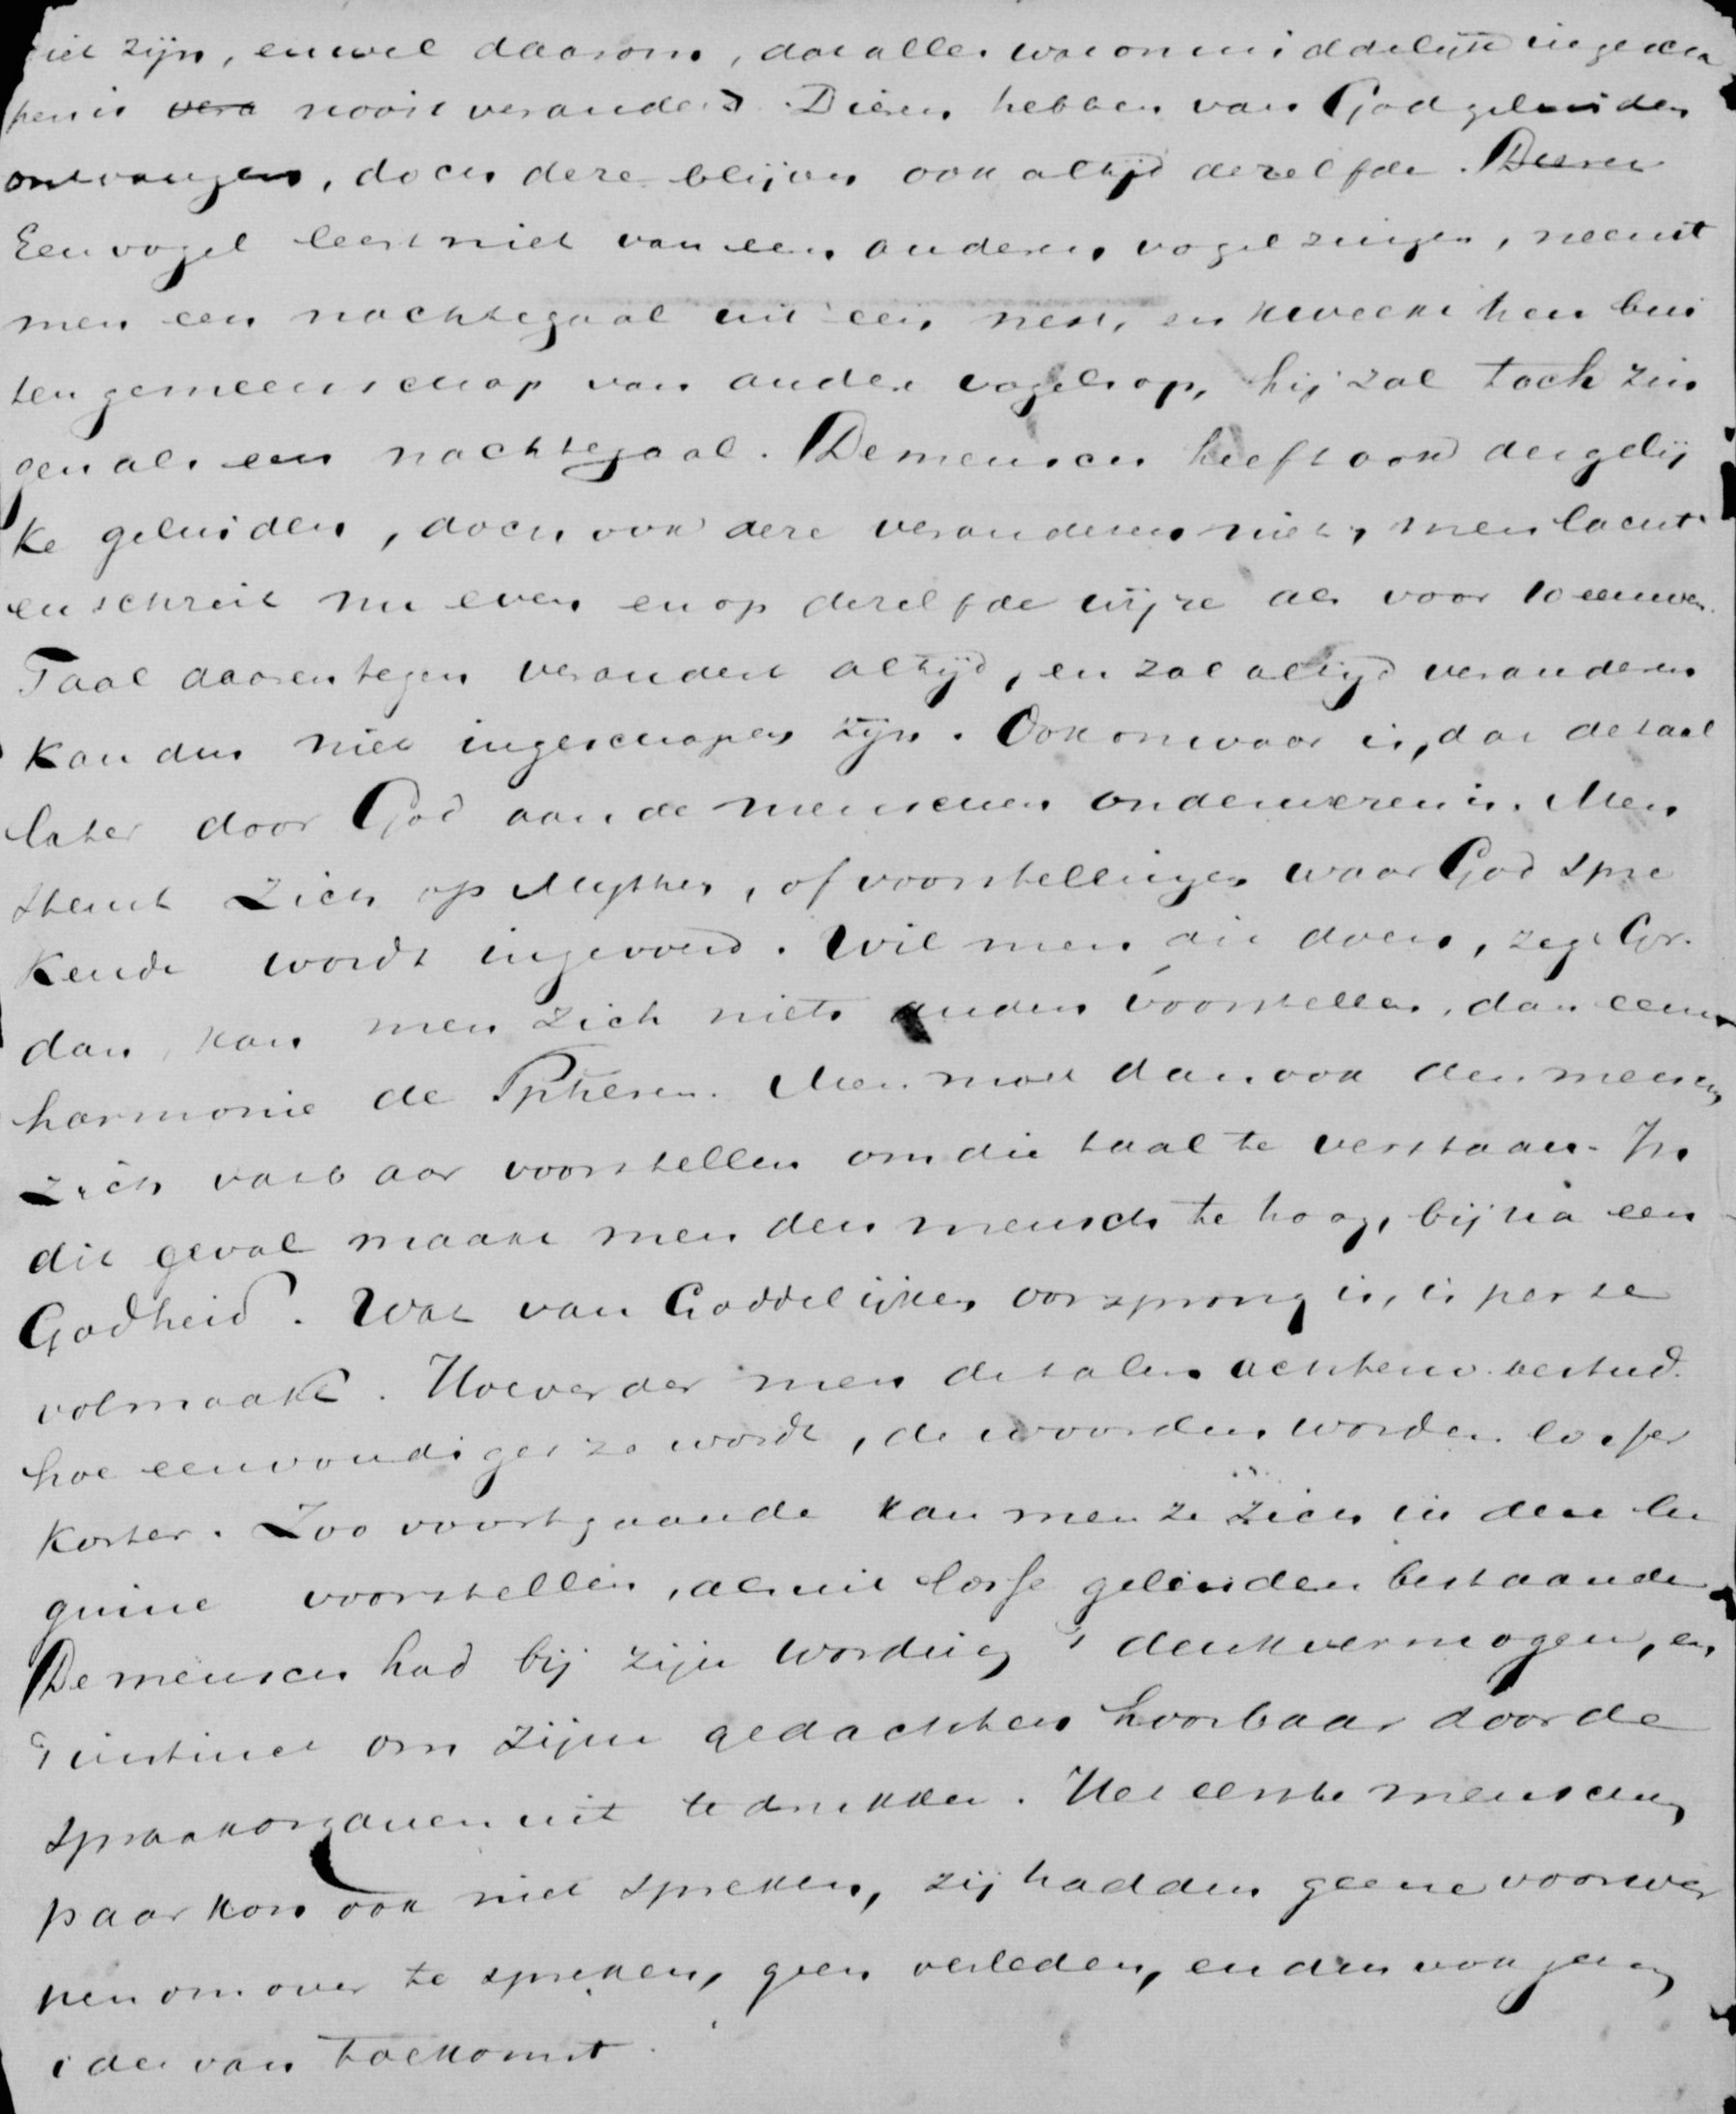 niet zijn, en wel daarom, dat alles wat onmiddelijk ingescha
pen is vera nooit verandert. Dieren hebben van God geluiden
ontvangen, doch deze blijven ook altijd dezelfde. Dieren
Een vogel leert niet van een anderen vogel zingen, neemt
men een nachtegaal uit een nest, en kweekt hen bui
ten gemeenschap van andere vogels op, hij zal toch zin
gen als een nachtegaal. De mensch heeft ook dergelij
ke geluiden, doch ook deze veranderen niet, men lacht
en schreit nu even en op dezelfde wijze als voor 10 eeuwen.
Taal daarentegen verandert altijd, en zal altijd veranderen
kan dus niet ingeschapen zijn. Ook onwaar is, dat de taal
later door God aan de menschen onderwezen is. Men
steunt zich op Mythen, of voorstellingen waar God spre
kende wordt ingevoerd. Wil men dit doen, zegt Gr.
dan kan men zich niets anders voorstellen, dan eene
harmonie de Spheren. Men moet dan ook den mensch
zich vatbaar voorstellen om die taal te verstaan. In
dit geval maakt men den mensch te hoog, bijna een
Godheid. Wat van Goddelijken oorsprong is, is per se
volmaakt. Hoe verder men de talen achterw. bestud.
hoe eenvoudiger ze wordt, de woorden worden losser
korter. Zoo voortgaande kan men ze zich in den be
ginne voorstellen, als uit losse geluiden bestaande.
De mensch had bij zijn wording 't denkvermogen, en
't instinct om zijne gedachten hoorbaar door de
spraakorganen uit te drukken. Het eerste menschen
paar kon ook niet spreken, zij hadden geene voorwer
pen om over te spreken, geen verleden, en dus ook geen
idee van toekomst.